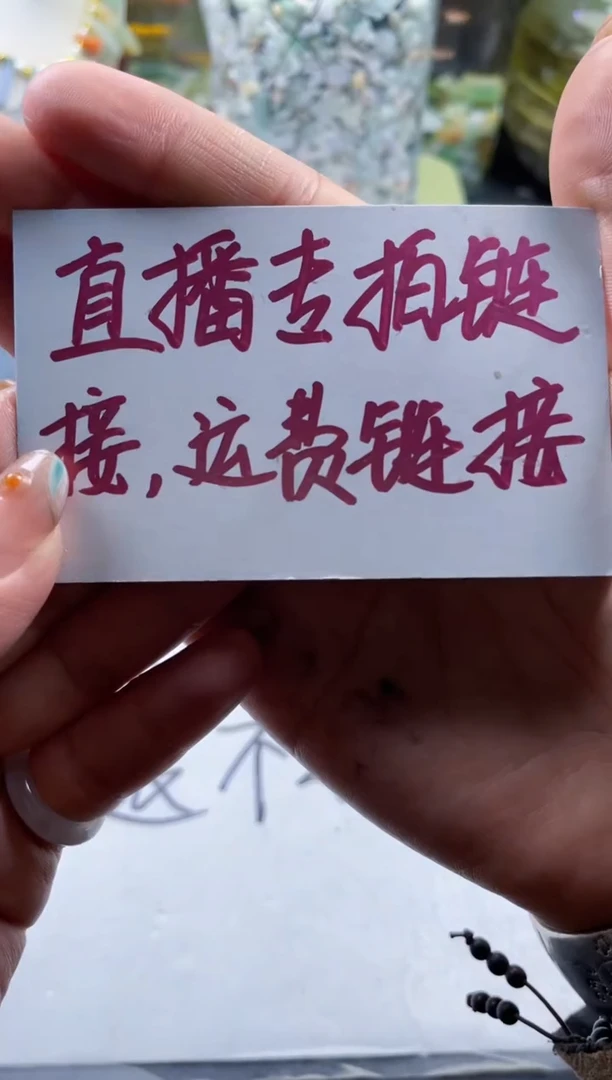 直播专拍链
接，运费链接
不